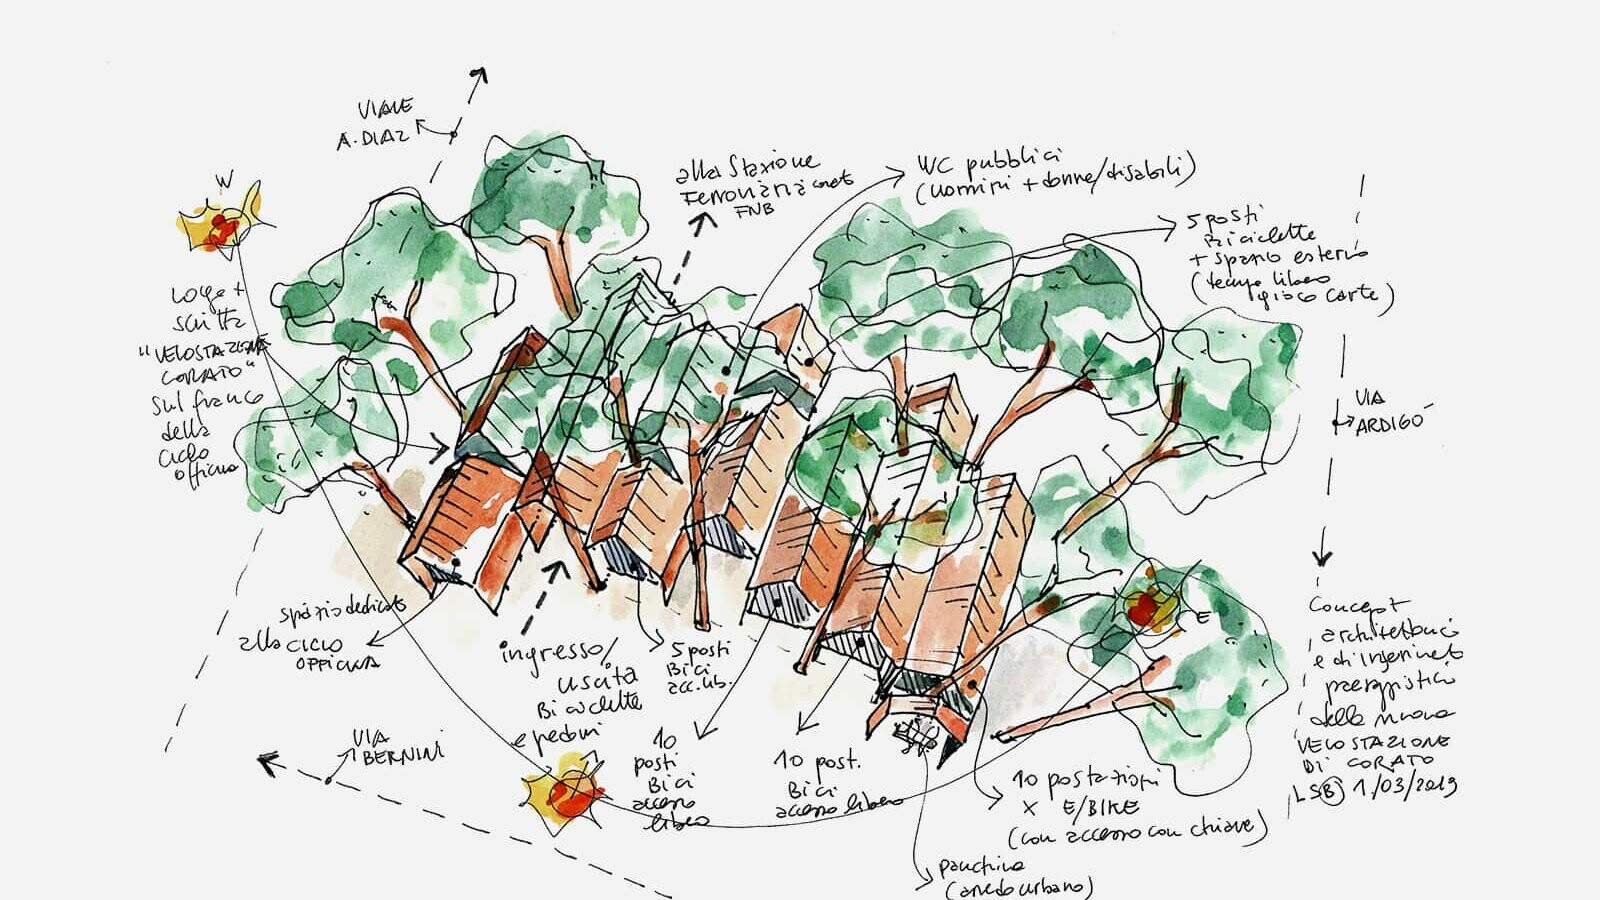 VIALE
A. DIAZ
W
logo +
scritta
"VELOSTAZIONE
CORATO"
sul fianco
della
ciclo
officina
alla Stazione
Ferroviaria
FNB
WC pubblici
(uomini + donne/disabili)
5 posti
Biciclette
+ spazio esterno
(tempo libero
gioco carte)
VIA
ARDIGÓ
spazio dedicato
alla CICLO
OFFICINA
ingresso/
uscita
Biciclette
e pedoni
5 posti
Bici
acc. lib.
VIA
BERNINI
10
posti
Bici
accesso
libero
10 post.
Bici
accesso libero
10 postazioni
X E/BIKE
(con accesso con chiave)
panchina
(arredo urbano)
E
Concept
architettonico
e di inserimento
paesaggistico
della nuova
VELOSTAZIONE
DI CORATO
LSB 1/03/2019